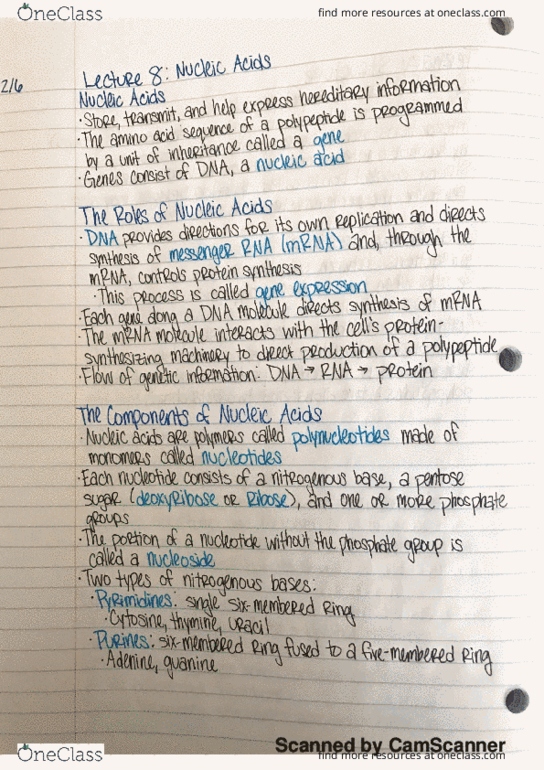 OneClass
find more resources at oneclass.com
2/6
Lecture 8: Nucleic Acids
Nucleic Acids
· Store, transmit, and help express hereditary information
· The amino acid sequence of a polypeptide is programmed
by a unit of inheritance called a gene
· Genes consist of DNA, a nucleic acid
The Roles of Nucleic Acids
· DNA provides directions for its own replication and directs
synthesis of messenger RNA (mRNA) and, through the
mRNA, controls protein synthesis
· This process is called gene expression
· Each gene along a DNA molecule directs synthesis of mRNA
· The mRNA molecule interacts with the cell's protein-
synthesizing machinery to direct production of a polypeptide
· Flow of genetic information: DNA → RNA → protein
The Components of Nucleic Acids
· Nucleic acids are polymers called polynucleotides made of
monomers called nucleotides
· Each nucleotide consists of a nitrogenous base, a pentose
sugar (deoxyribose or ribose), and one or more phosphate
groups
· The portion of a nucleotide without the phosphate group is
called a nucleoside
· Two types of nitrogenous bases:
· Pyrimidines: single six-membered ring
· Cytosine, thymine, uracil
· Purines: six-membered ring fused to a five-membered ring
· Adenine, guanine
Scanned by CamScanner
OneClass
find more resources at oneclass.com